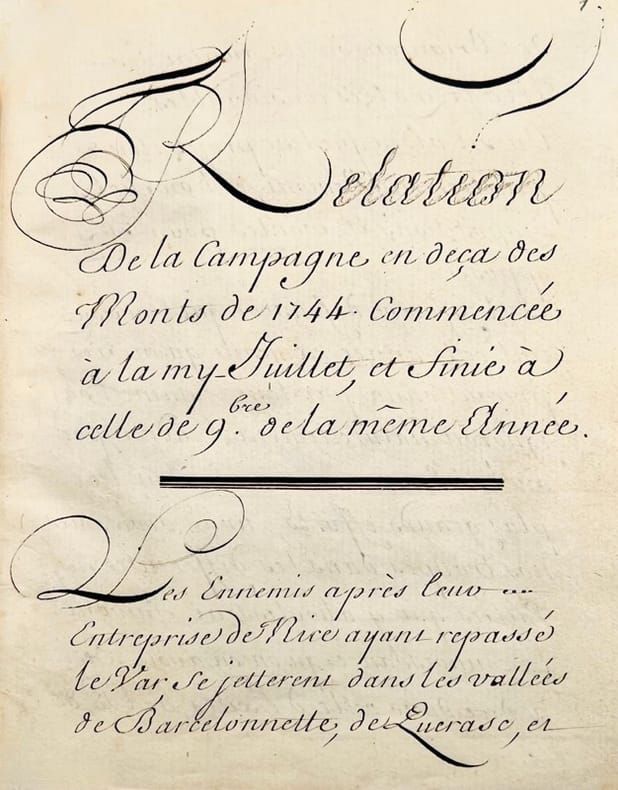 1.
Relation
De la Campagne en deça des
Monts de 1744. Commencée
à la my-Juillet, et finie à
celle de 9.bre de la même Année.
Les Ennemis après leur ....
Entreprise de Nice ayant repassé
le Var, se jetterent dans les vallées
de Barcelonnette, de Querasc, et